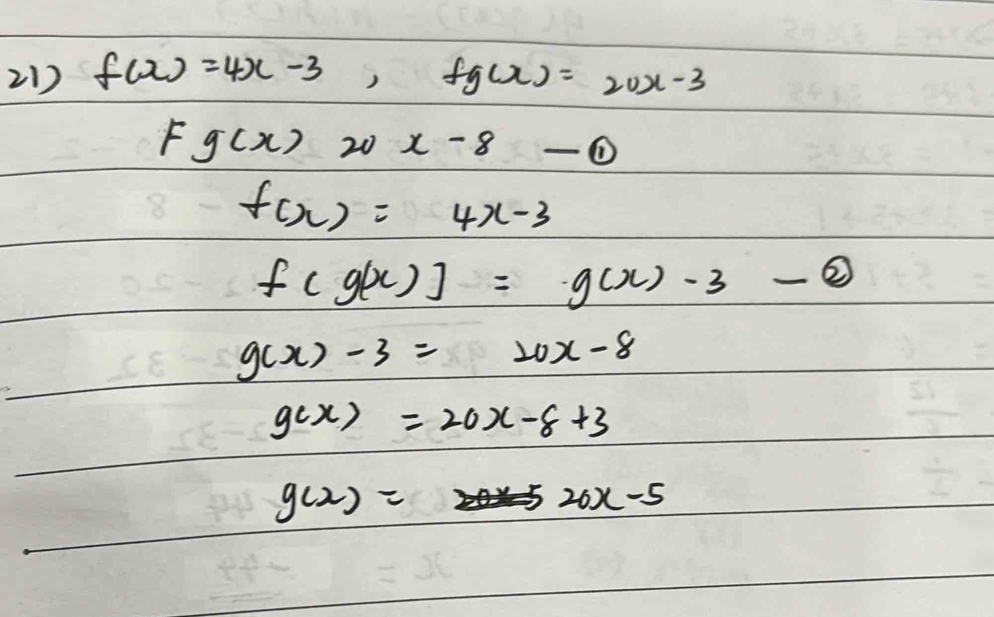 21) f(x) = 4x - 3 , fg(x) = 20x - 3
Fg(x) 20x - 8 — ①
f(x) = 4x - 3
f(g(x)] = g(x) - 3 — ②
g(x) - 3 = 20x - 8
g(x) = 20x - 8 + 3
g(x) = 20x - 5 20x - 5